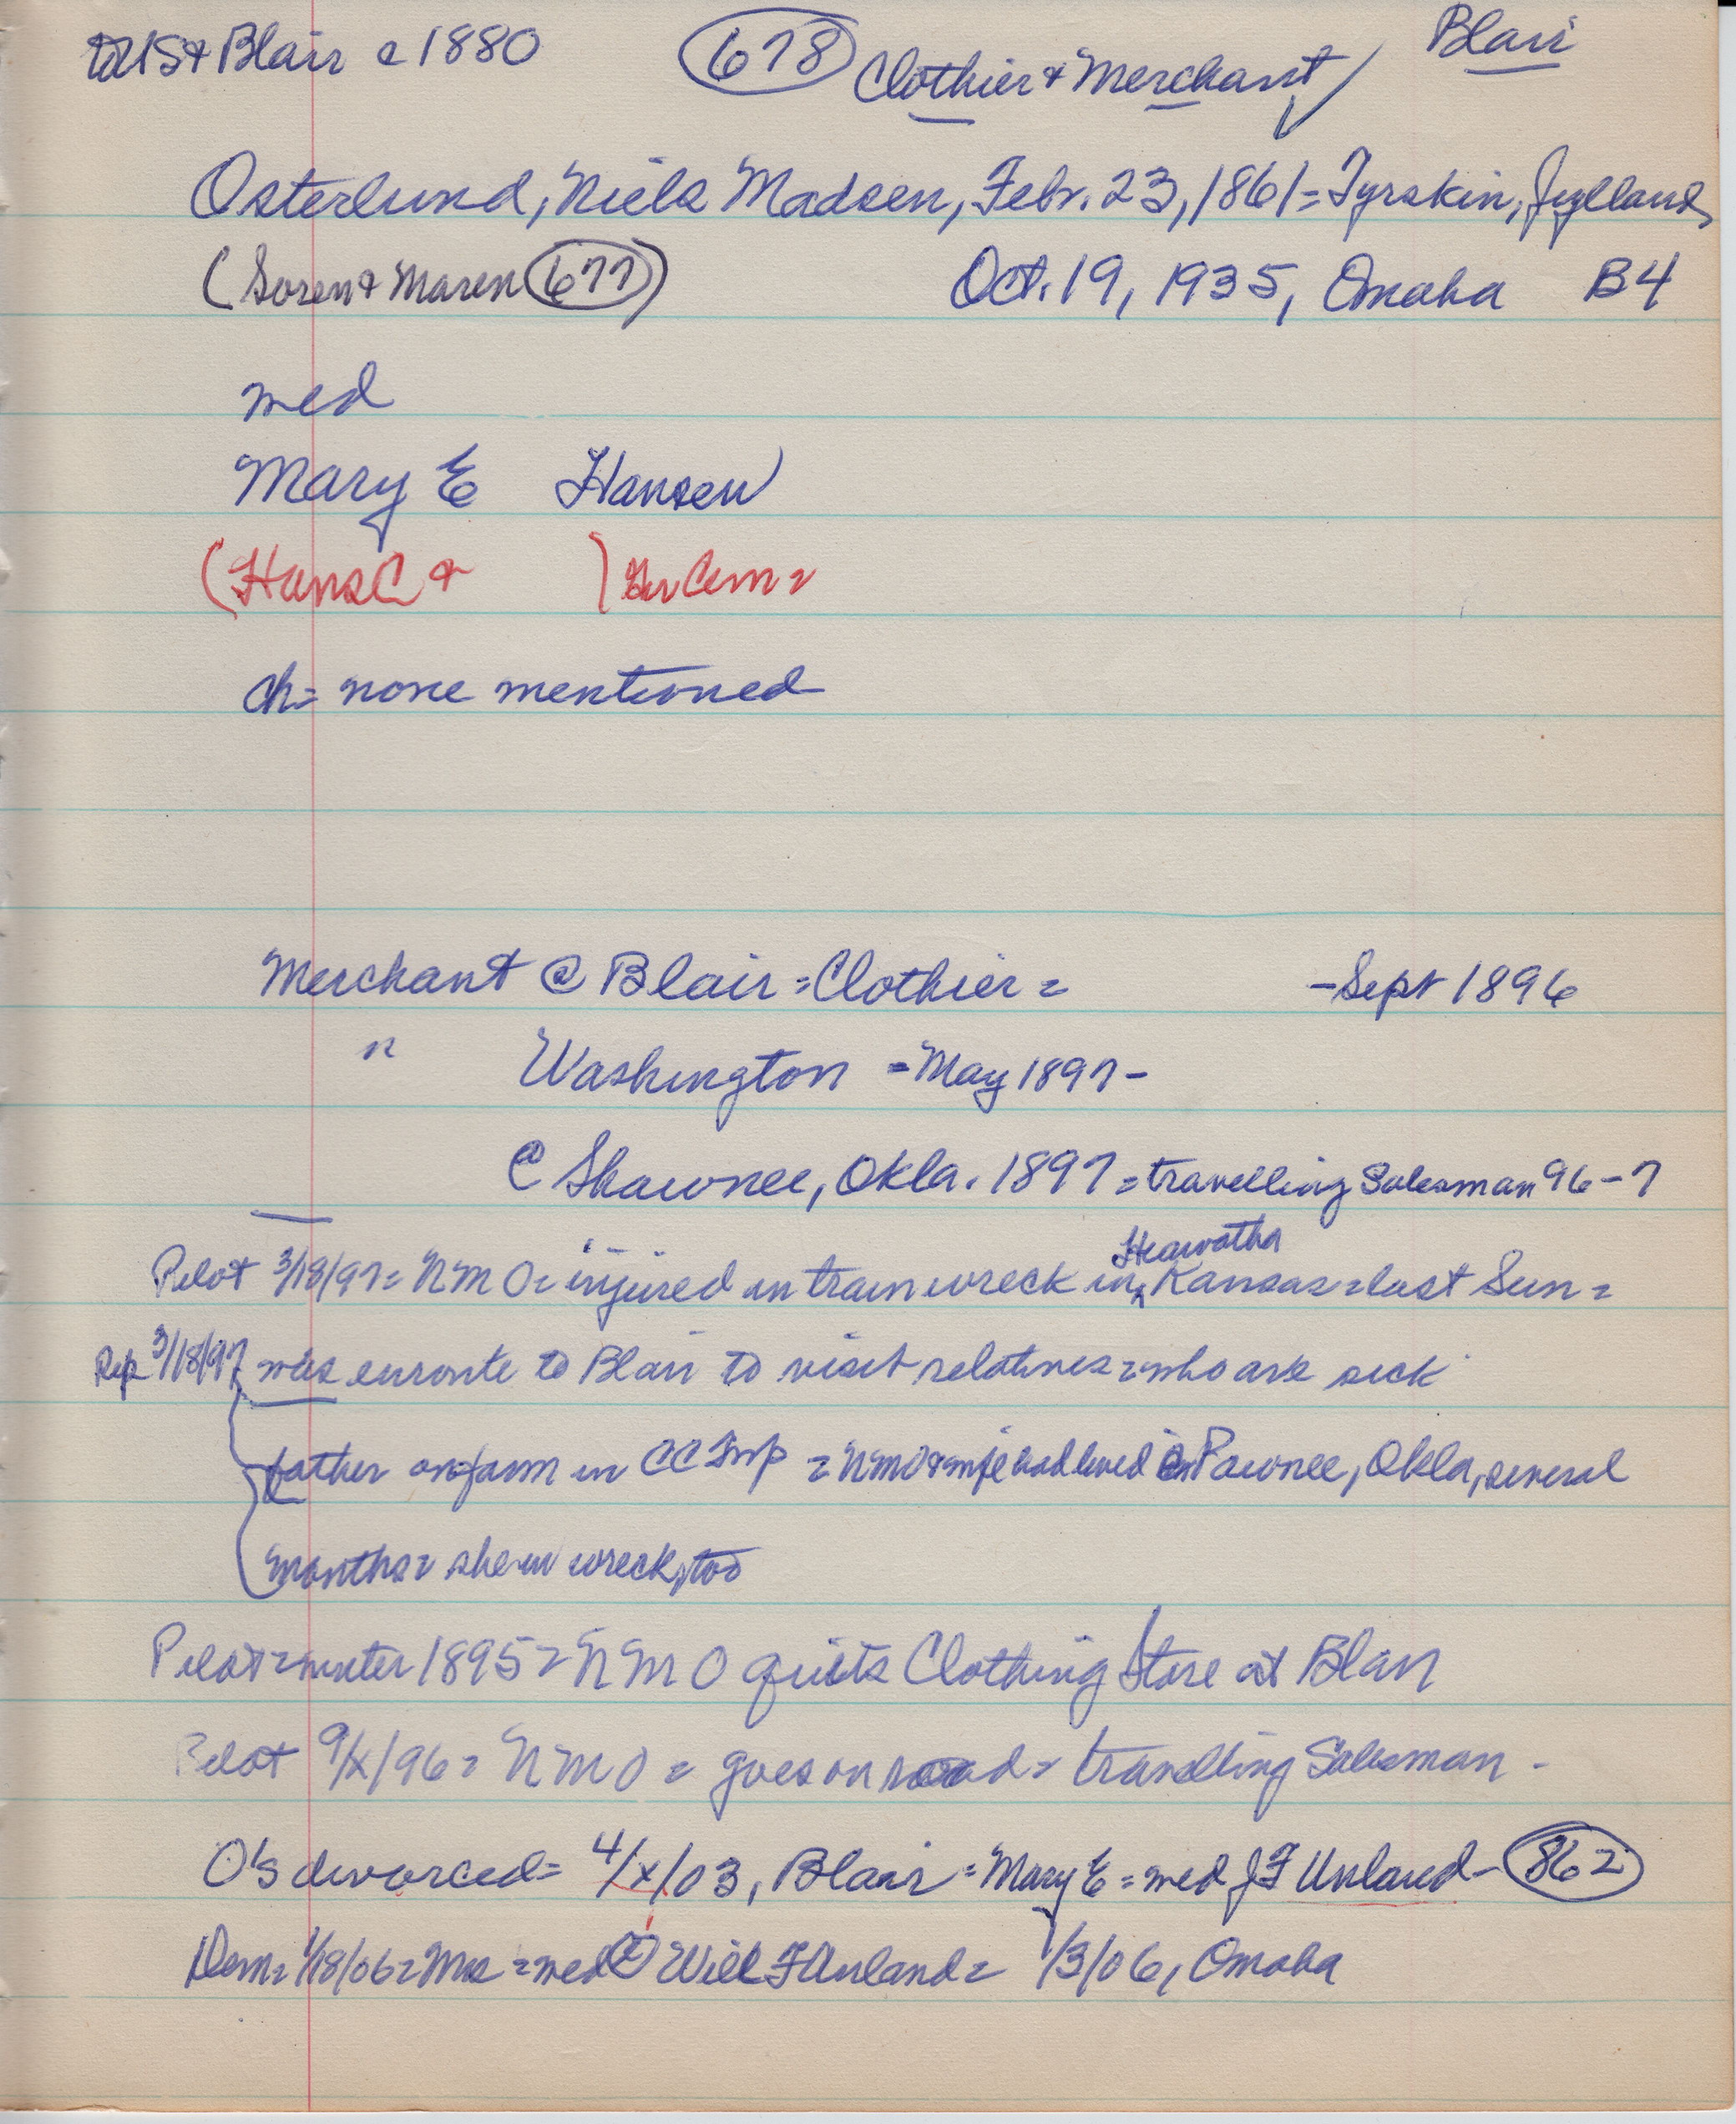 to US & Blair c 1880 678 Clothier & Merchant Blair
Osterlund, Niels Madsen, Febr. 23, 1861 = Tyrskin, Jylland,
(Soren & Maren 677) Oct. 19, 1935, Omaha B4
med
Mary E Hansen
(Hans C & )
ch = none mentioned
Merchant @ Blair = Clothier = - Sept 1896
" Washington = May 1897 -
@ Shawnee, Okla. 1897 = travelling Salesman 96-7
Hiawatha
Pilot 3/18/97 = NMO = injured in train wreck in ^ Kansas = last Sun =
Rep 3/18/97 was enroute to Blair to visit relatives = who are sick
father on farm in CC Twp = NMO & wife had lived in Pawnee, Okla, several
months = she in wreck, too
Pilot = winter 1895 = NMO quits Clothing Store at Blair
Pilot 9/x/96 = NMO = goes on road = travelling Salesman -
O's divorced = 4/x/03, Blair = Mary E = med J F Unland - 862
Dem = 1/18/06 = Mrs = med (2) Will F Unland = 1/3/06, Omaha